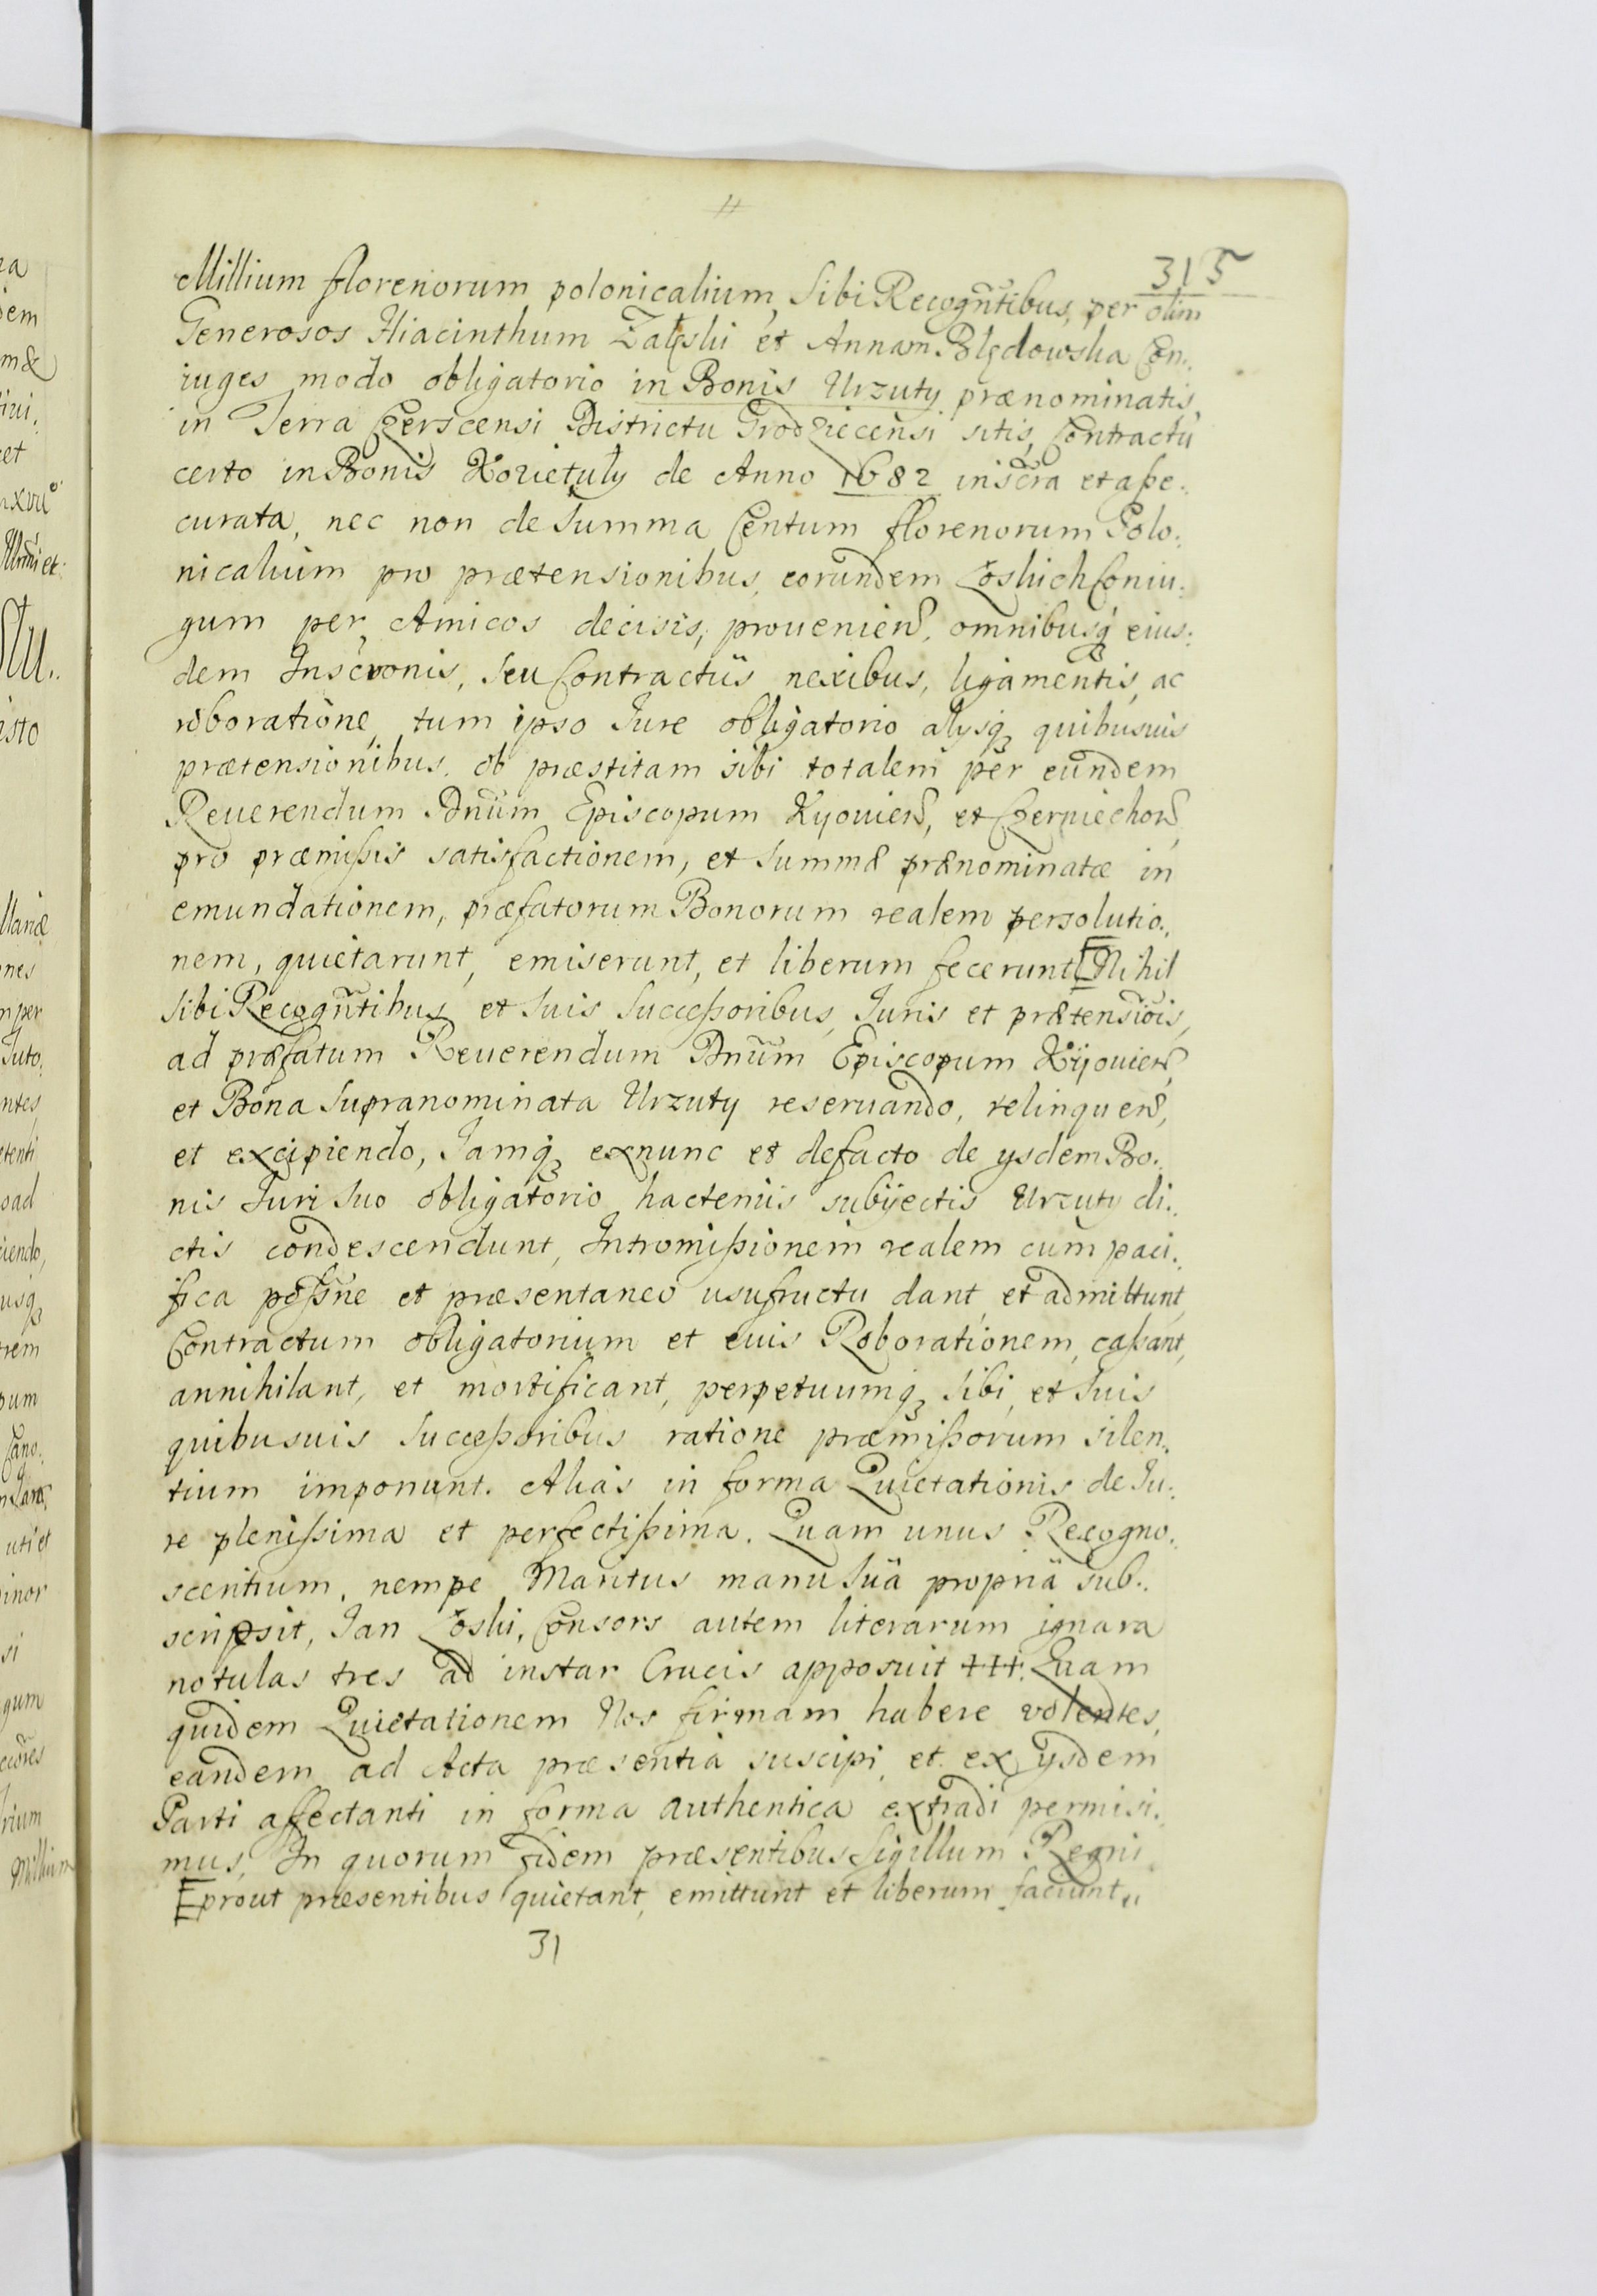 315
Millium florenorum polonicalium, Sibi Recogñtibus, per olim
Generosos Hiacinthum Zaleski et Annam Blędowska Con:
iuges modo obligatorio in Bonis Urzuty prænominatis,
in Terra Czerscensi Districtu Grodziecensi sitis, Contractu
certo in Bonis Kozietuły de Anno 1682 inscra et asse:
curata, nec non de Summa Centum florenorum Polo:
nicalium pro prætensionibus, eorundem Łoskich Coniu:
gum per Amicos decisis, prouenien, omnibusq eius:
dem Inscronis, Seu Contractûs nexibus, ligamentis, ac
roboratione, tum ipso Jure obligatorio alysq quibusuis
prætensionibus. ob præstitam sibi totalem per eundem
Reuerendum Dnum Episcopum Kyouien, et Czerniechon,
pro præmissis satisfactionem, et Summæ prænominatæ in
emundationem, præfatorum Bonorum realem persolutio:
nem, quietarunt, emiserunt, et liberum fecerunt [Nihil
Sibi Recogñtibus, et Suis Successoribus, Juris et prætensiois,
ad præfatum Reuerendum Dnum Episcopum Kijouien,
et Bona Supranominata Urzuty reseruando, relinquen,
et excipiendo, Jamq exnunc et defacto de ysdem Bo:
nis Juri Suo obligatorio hactenus subijectis Urzuty di:
ctis condescendunt, Intromissionem realem cum paci:
fica possne et præsentaneo usufructu dant et admittunt,
Contractum obligatorium et euis Roborationem, cassant,
annihilant, et mortificant, perpetuumq Sibi, et Suis
quibusuis Successoribus ratione præmissorum silen:
tium imponunt. Alias in forma Quietationis de Ju:
re plenissima et perfectissima. Quam unus Recogno:
scentium, nempe Maritus manu Suâ propriâ sub:
scripsit, Jan Łoski, Consors autem literarum ignara
notulas tres ad instar Crucis apposuit +++. Quam
quidem Quietationem Nos firmam habere volentes,
eandem ad Acta præsentia suscipi, et ex ysdem
Parti affectanti in forma authentica extradi permisi:
mus, In quorum fidem præsentibus Sigillum Regni
[prout præsentibus quietant, emittunt et liberum faciunt
31